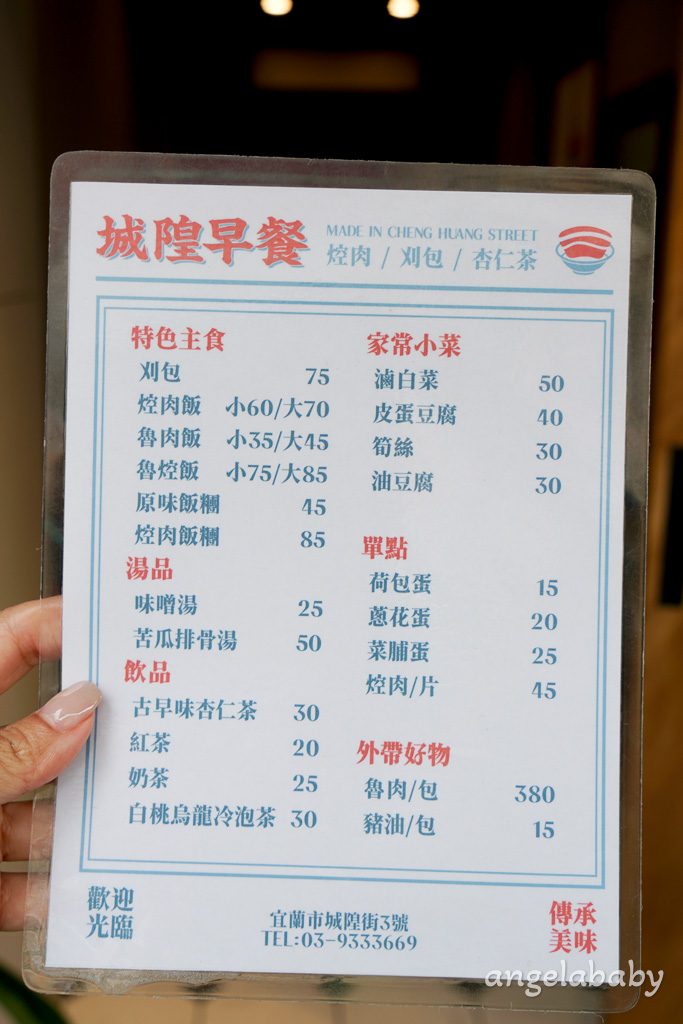 城隍早餐
MADE IN CHENG HUANG STREET
焢肉 / 刈包 / 杏仁茶
特色主食
刈包 75
焢肉飯 小60/大70
魯肉飯 小35/大45
魯焢飯 小75/大85
原味飯糰 45
焢肉飯糰 85
湯品
味噌湯 25
苦瓜排骨湯 50
飲品
古早味杏仁茶 30
紅茶 20
奶茶 25
白桃烏龍冷泡茶 30
家常小菜
滷白菜 50
皮蛋豆腐 40
筍絲 30
油豆腐 30
單點
荷包蛋 15
蔥花蛋 20
菜脯蛋 25
焢肉/片 45
外帶好物
魯肉/包 380
豬油/包 15
歡迎
光臨
宜蘭市城隍街3號
TEL:03-9333669
傳承
美味
angelababy